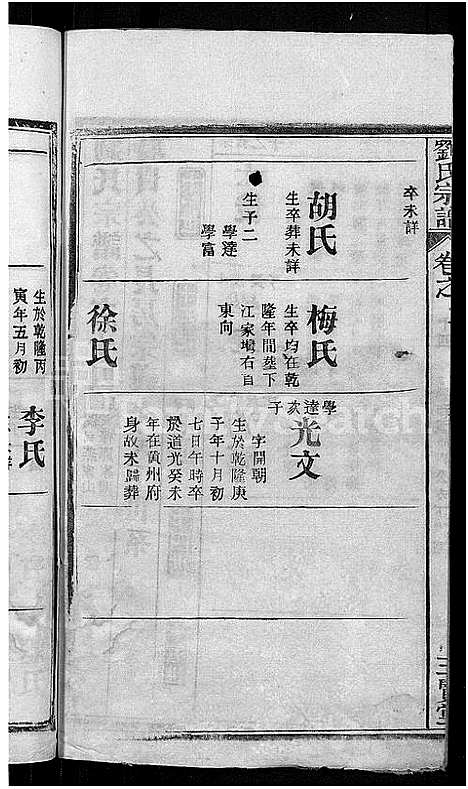 劉氏宗譜
卷之
卒未詳
胡氏
生卒葬未詳
生子二
學達
學富
梅氏
生卒均在乾
隆年間塟下
江家塘右自
東向
徐氏
學達次子
光文
字開朝
生於乾隆庚
子年十月初
七日午時卒
於道光癸未
年在黃州府
身故未歸葬
生於乾隆丙
寅年五月初
李氏